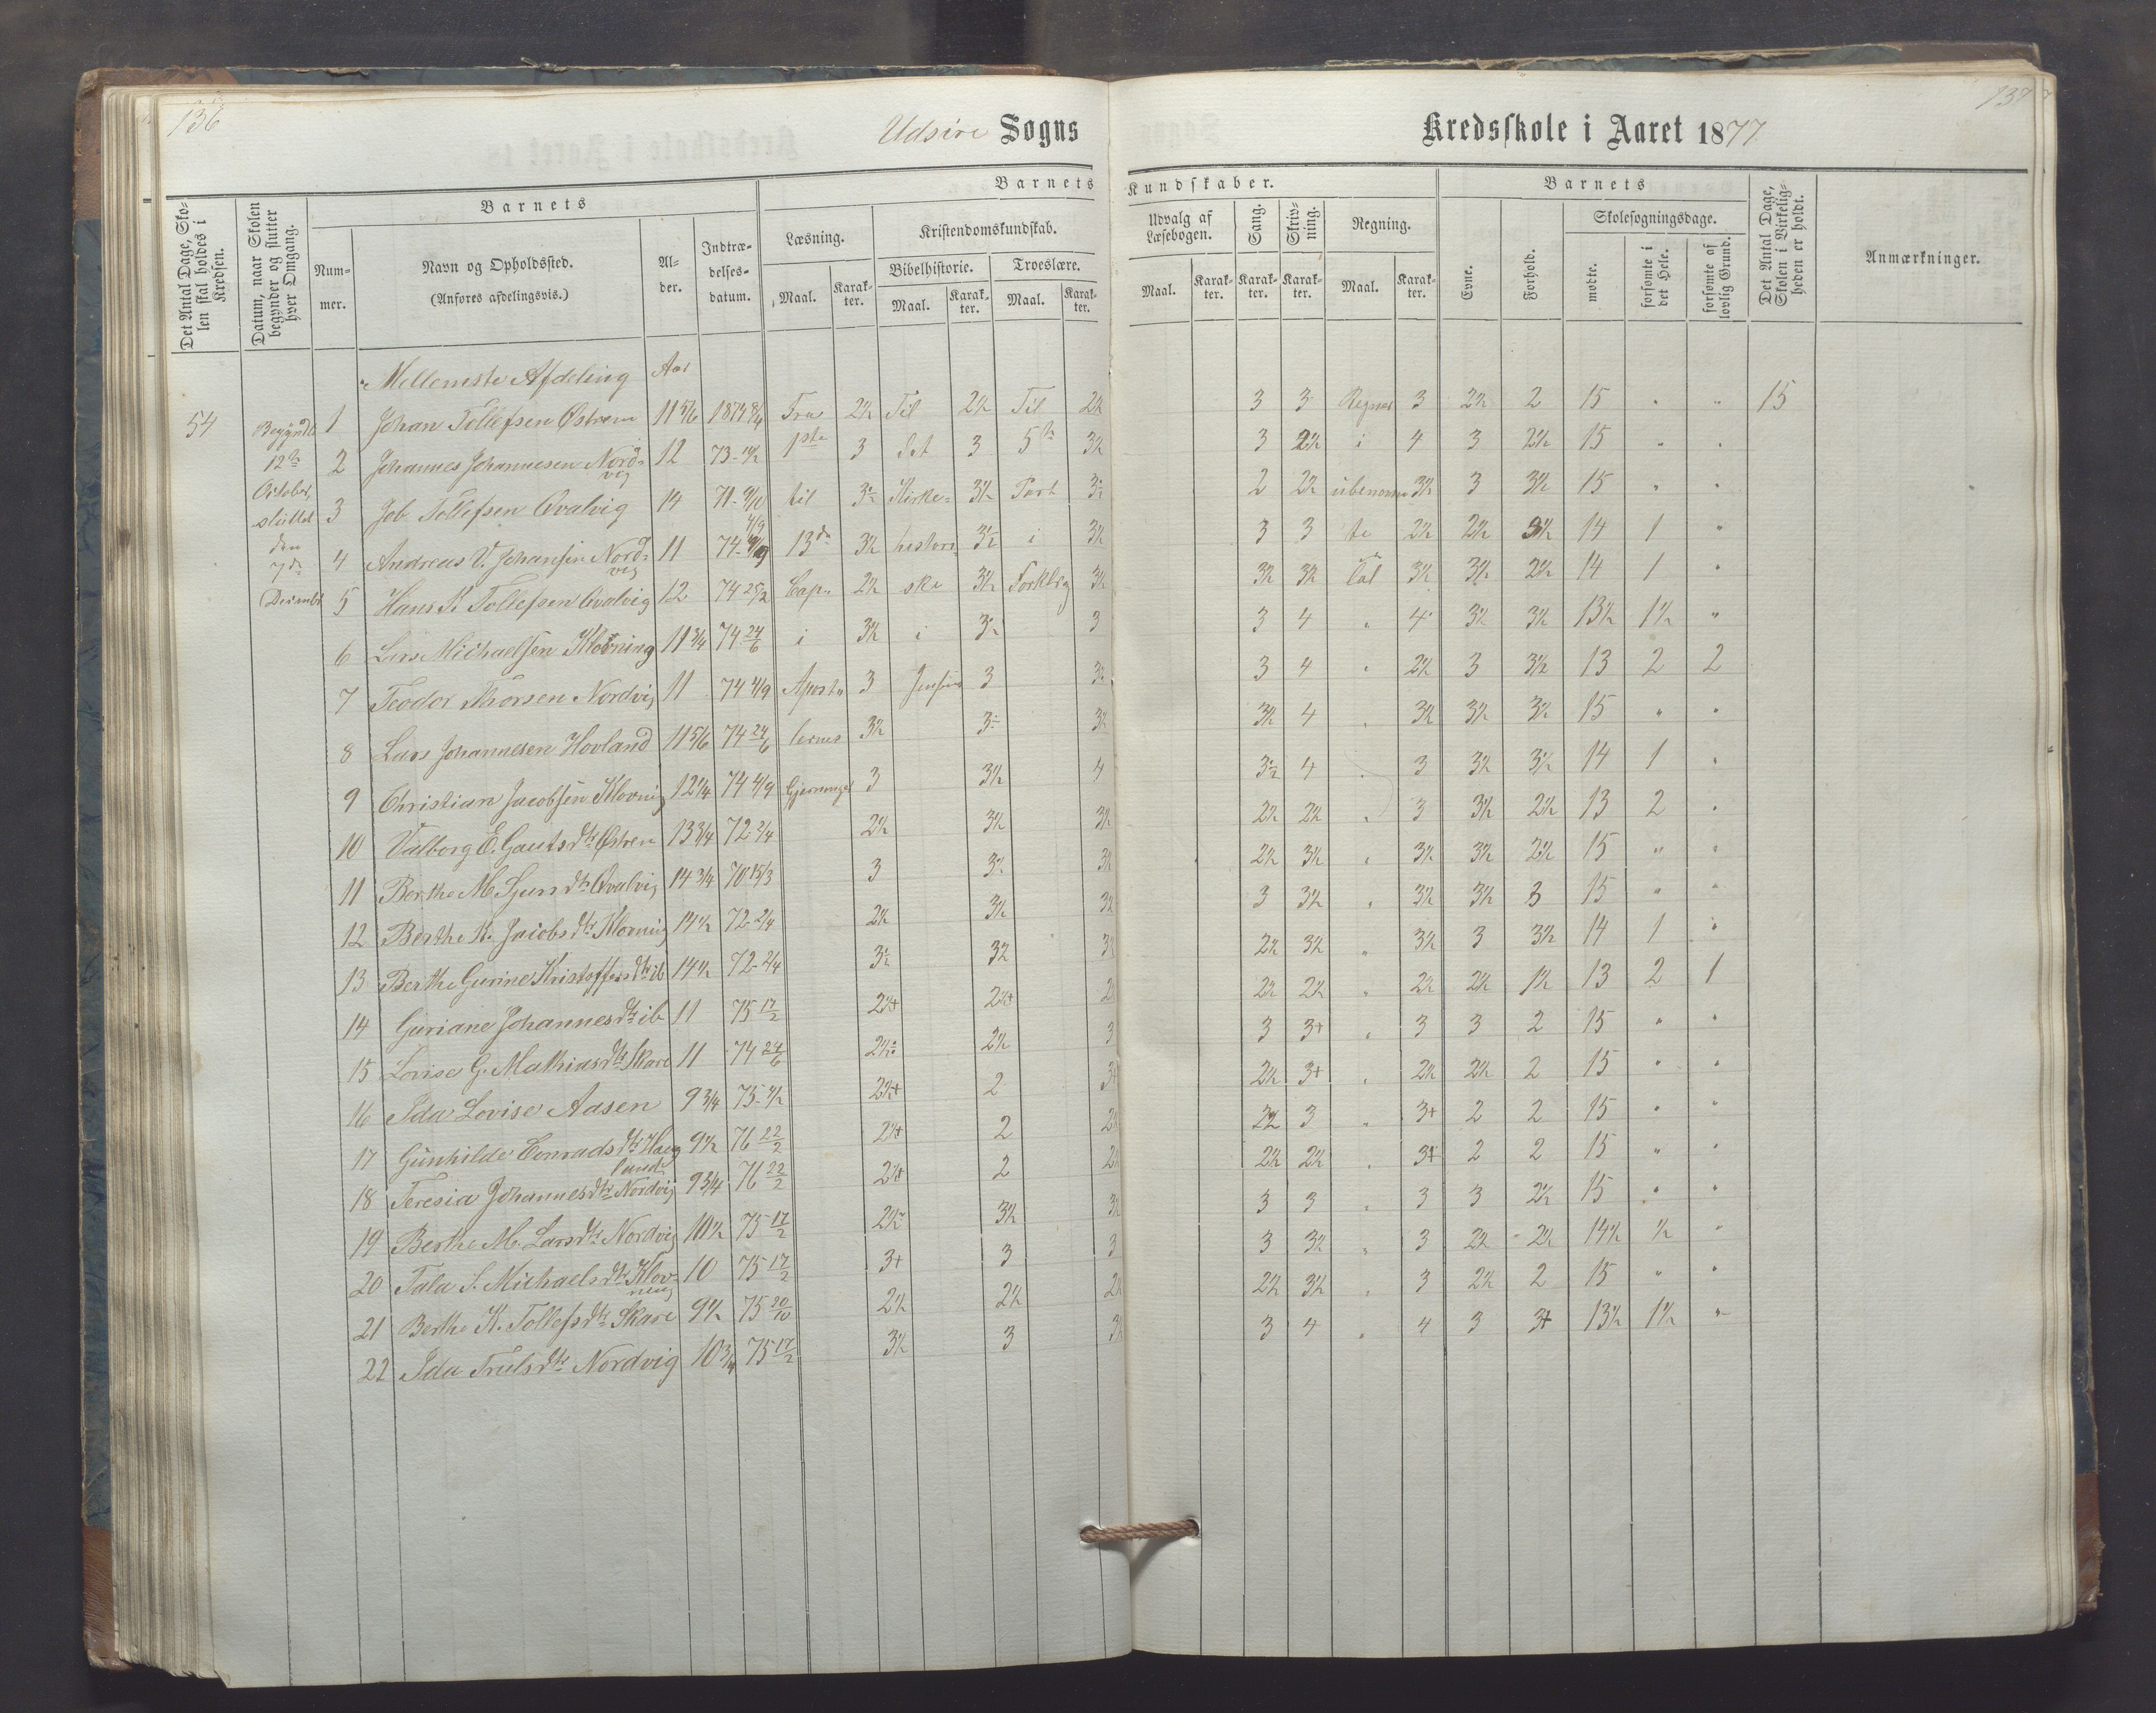 136
Udsire Sogns
Kredsskole i Aaret 1877
137
Det Antal Dage, Skolen skal holdes i Kredsen.
Datum, naar Skolen begynder og slutter hver Omgang.
Barnets
Nummer.
Navn og Opholdssted.
(Anføres afdelingsvis.)
Alder.
Indtrædelsesdatum.
Barnets
Kundskaber.
Læsning.
Maal.
Karakter.
Kristendomskundskab.
Bibelhistorie.
Maal.
Karakter.
Troeslære.
Maal.
Karakter.
Udvalg af Læsebogen.
Maal.
Karakter.
Sang.
Karakter.
Skrivning.
Karakter.
Regning.
Maal.
Karakter.
Barnets
Evne.
Forhold.
Skolesøgningsdage.
mødte.
forsømte i det Hele.
forsømte af lovlig Grund.
Det Antal Dage, Skolen i Virkeligheden er holdt.
Anmærkninger.
Mellemste Afdeling Aar
54 Begyndte 12te October, sluttet den 7de December
1 Johan Tollefsen Østrem 11 5/6 Fra 2½ Til 2½ Til 2½ 3 3 Regnet 3 2½ 2 15 " " 15
2 Johannes Johannesen Nordvig 12 1ste 3 det 3 5te 3½ 3 2½ i 4 3 2½ 15 " "
3 Job Tollefsen Qvalvig 14 til 3½ Kirke= 3½ Part 3½ 2 2½ ubenævn 3½ 3 3½ 15 " "
4 Andreas V. Johansen Nordvig 11 13de 3½ histori 3½ i 3½ 3 3 te 2½ 2½ 3½ 14 1 "
5 Hans K Tollefsen Qvalvig 12 74 25/2 Cap. 2½ ske 3½ Forklrg 3½ 3½ 3½ Tal 3½ 3½ 2½ 14 1 "
6 Lars Michaelsen Klovning 11 3/4 74 24/6 i 3½ i 3½ 3 3 4 " 4 3½ 3½ 13½ 1½ "
7 Teodor Thorsen Nordvig 11 74 4/9 Apost 3 Jensens 3 3½ 3 4 " 2½ 3 3½ 13 2 2
8 Lars Johannesen Hovland 11 5/6 74 24/6 lernes 3½ 3½ 3½ 3½ 4 " 3½ 3½ 3½ 15 " "
9 Christian Jacobsen Klovning 12 1/4 74 4/9 Gjerninger 3 3½ 4 3½ 4 " 3 3½ 3½ 14 1 "
10 Valborg E. Gautsdtr Østrem 13 3/4 72 2/4 2½ 3½ 3½ 2½ 2½ " 3 3½ 2½ 13 2 "
11 Berthe M. Sjursdtr Qvalvig 14 3/4 70 15/3 3 3½ 3½ 2½ 3½ " 3½ 3½ 2½ 15 " "
12 Berthe K. Jacobsdtr Klovning 14½ 72 2/4 2½ 3½ 3½ 3 3½ " 3½ 3½ 3 15 " "
13 Berthe Gurine Kristoffersdtr ib 14½ 72 2/4 3½ 3½ 2½ 3½ " 3½ 3 3½ 14 1 "
14 Guriane Johannesdtr ib 11 75 17/2 2½+ 2½+ 2½ 2½ " 2½ 2½ 1½ 13 2 1
15 Lovise G. Mathiasdtr Skare 11 74 24/6 2½ 2½ 3 3 3+ " 3 3 2 15 " "
16 Ida Lovise Aasen 9 3/4 2½+ 2 3+ 2½ 3+ " 2½ 2½ 2 15 " "
17 Gunhilde Conradsdtr Haugland 9½ 76 22/2 2½+ 2 3 " 3+ 2 2 15 " "
18 Teresia Johannesdtr Nordvig 9 3/4 76 22/2 2½+ 2 2½ 2½ " 3+ 2 2 15 " "
19 Berthe M. Larsdtr Nordvig 10½ 75 17/2 2½ 3½ 3 3 " 3 3 2½ 15 " "
20 Tala S. Michaelsdtr Klovning 10 75 17/2 3+ 3 3 3 3½ " 3 2½ 2½ 14½ ½ "
21 Berthe K. Tollefsdtr Skare 9½ 75 20/10 2½ 2½ 2½ 2½ 3½ " 3 2½ 2 15 " "
22 Ida Trulsdtr Nordvig 10 3/4 75 17/2 3½ 3 3½ 3 4 " 4 3 3+ 13½ 1½ "